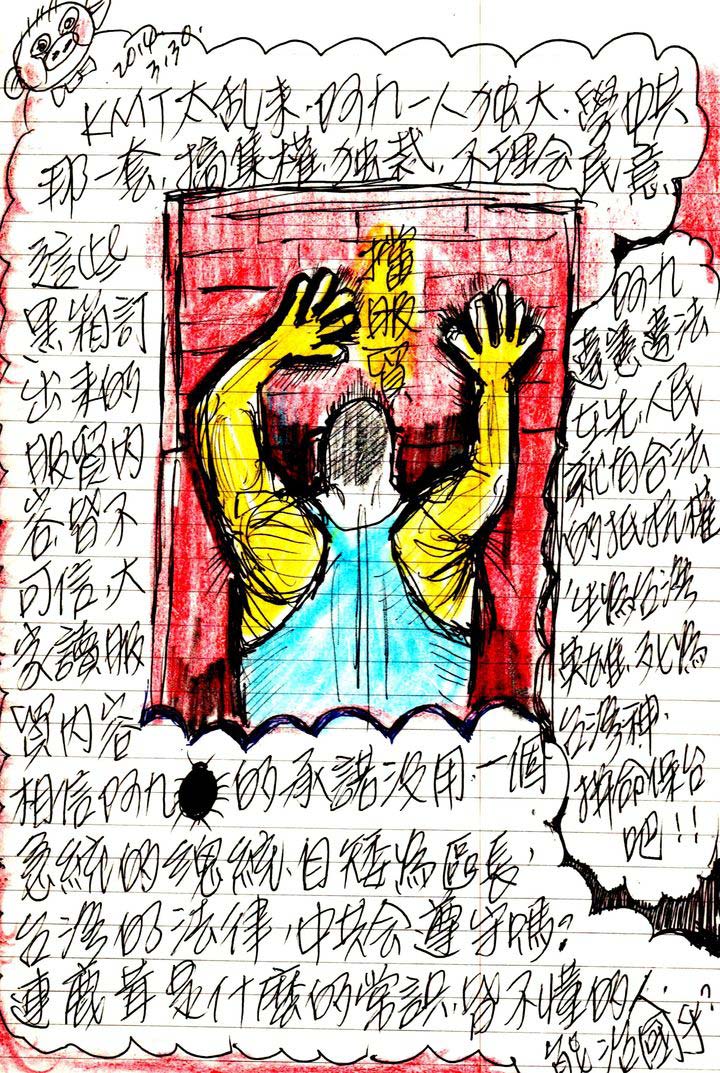 2014.
3.30.
KMT太乱来,阿九一人独大,學中共
那一套,搞集權,独裁,不理会民意,
擋
服
貿
這些
黑箱訂
出來的
服貿内
容,皆不
可信,大
家讀服
貿内容
相信阿九的承諾没用,一個
急統的總統,自矮為區長,
台灣的法律,中共会遵守嗎?
連鹿茸是什麼的常識,皆不懂的人,
能治國乎?
阿九
違憲違法
在先,人民
就有合法
的抵抗權
生為台灣
英雄,死為
台灣神,
拼命保台
吧!!